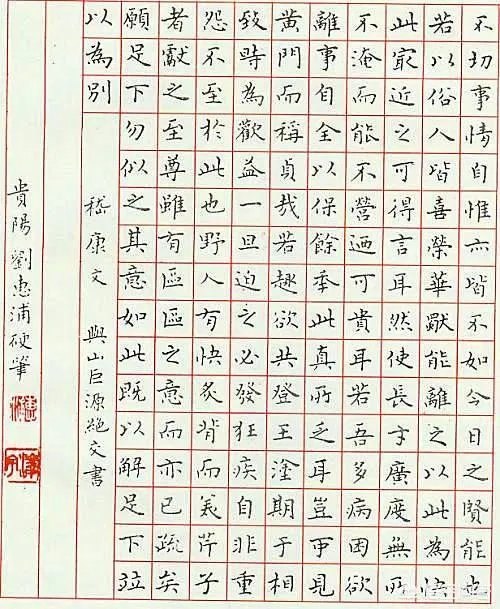 不切事情自惟亦皆不如今日之賢能也
若以俗人皆喜榮華獨能離之以此為快
此最近之可得言耳然使長才廣度無所
不淹而能不營迺可貴耳若吾多病困欲
離事自全以保餘年此真所乏耳豈可見
黃門而稱貞哉若趣欲共登王塗期于相
致時為歡益一旦迫之必發狂疾自非重
怨不至於此也野人有快炙背而美芹子
者獻之至尊雖有區區之意而亦已疏矣
願足下勿似之其意如此既以解足下竝
以為別
嵇康文 與山巨源絕交書
貴陽劉惠浦硬筆